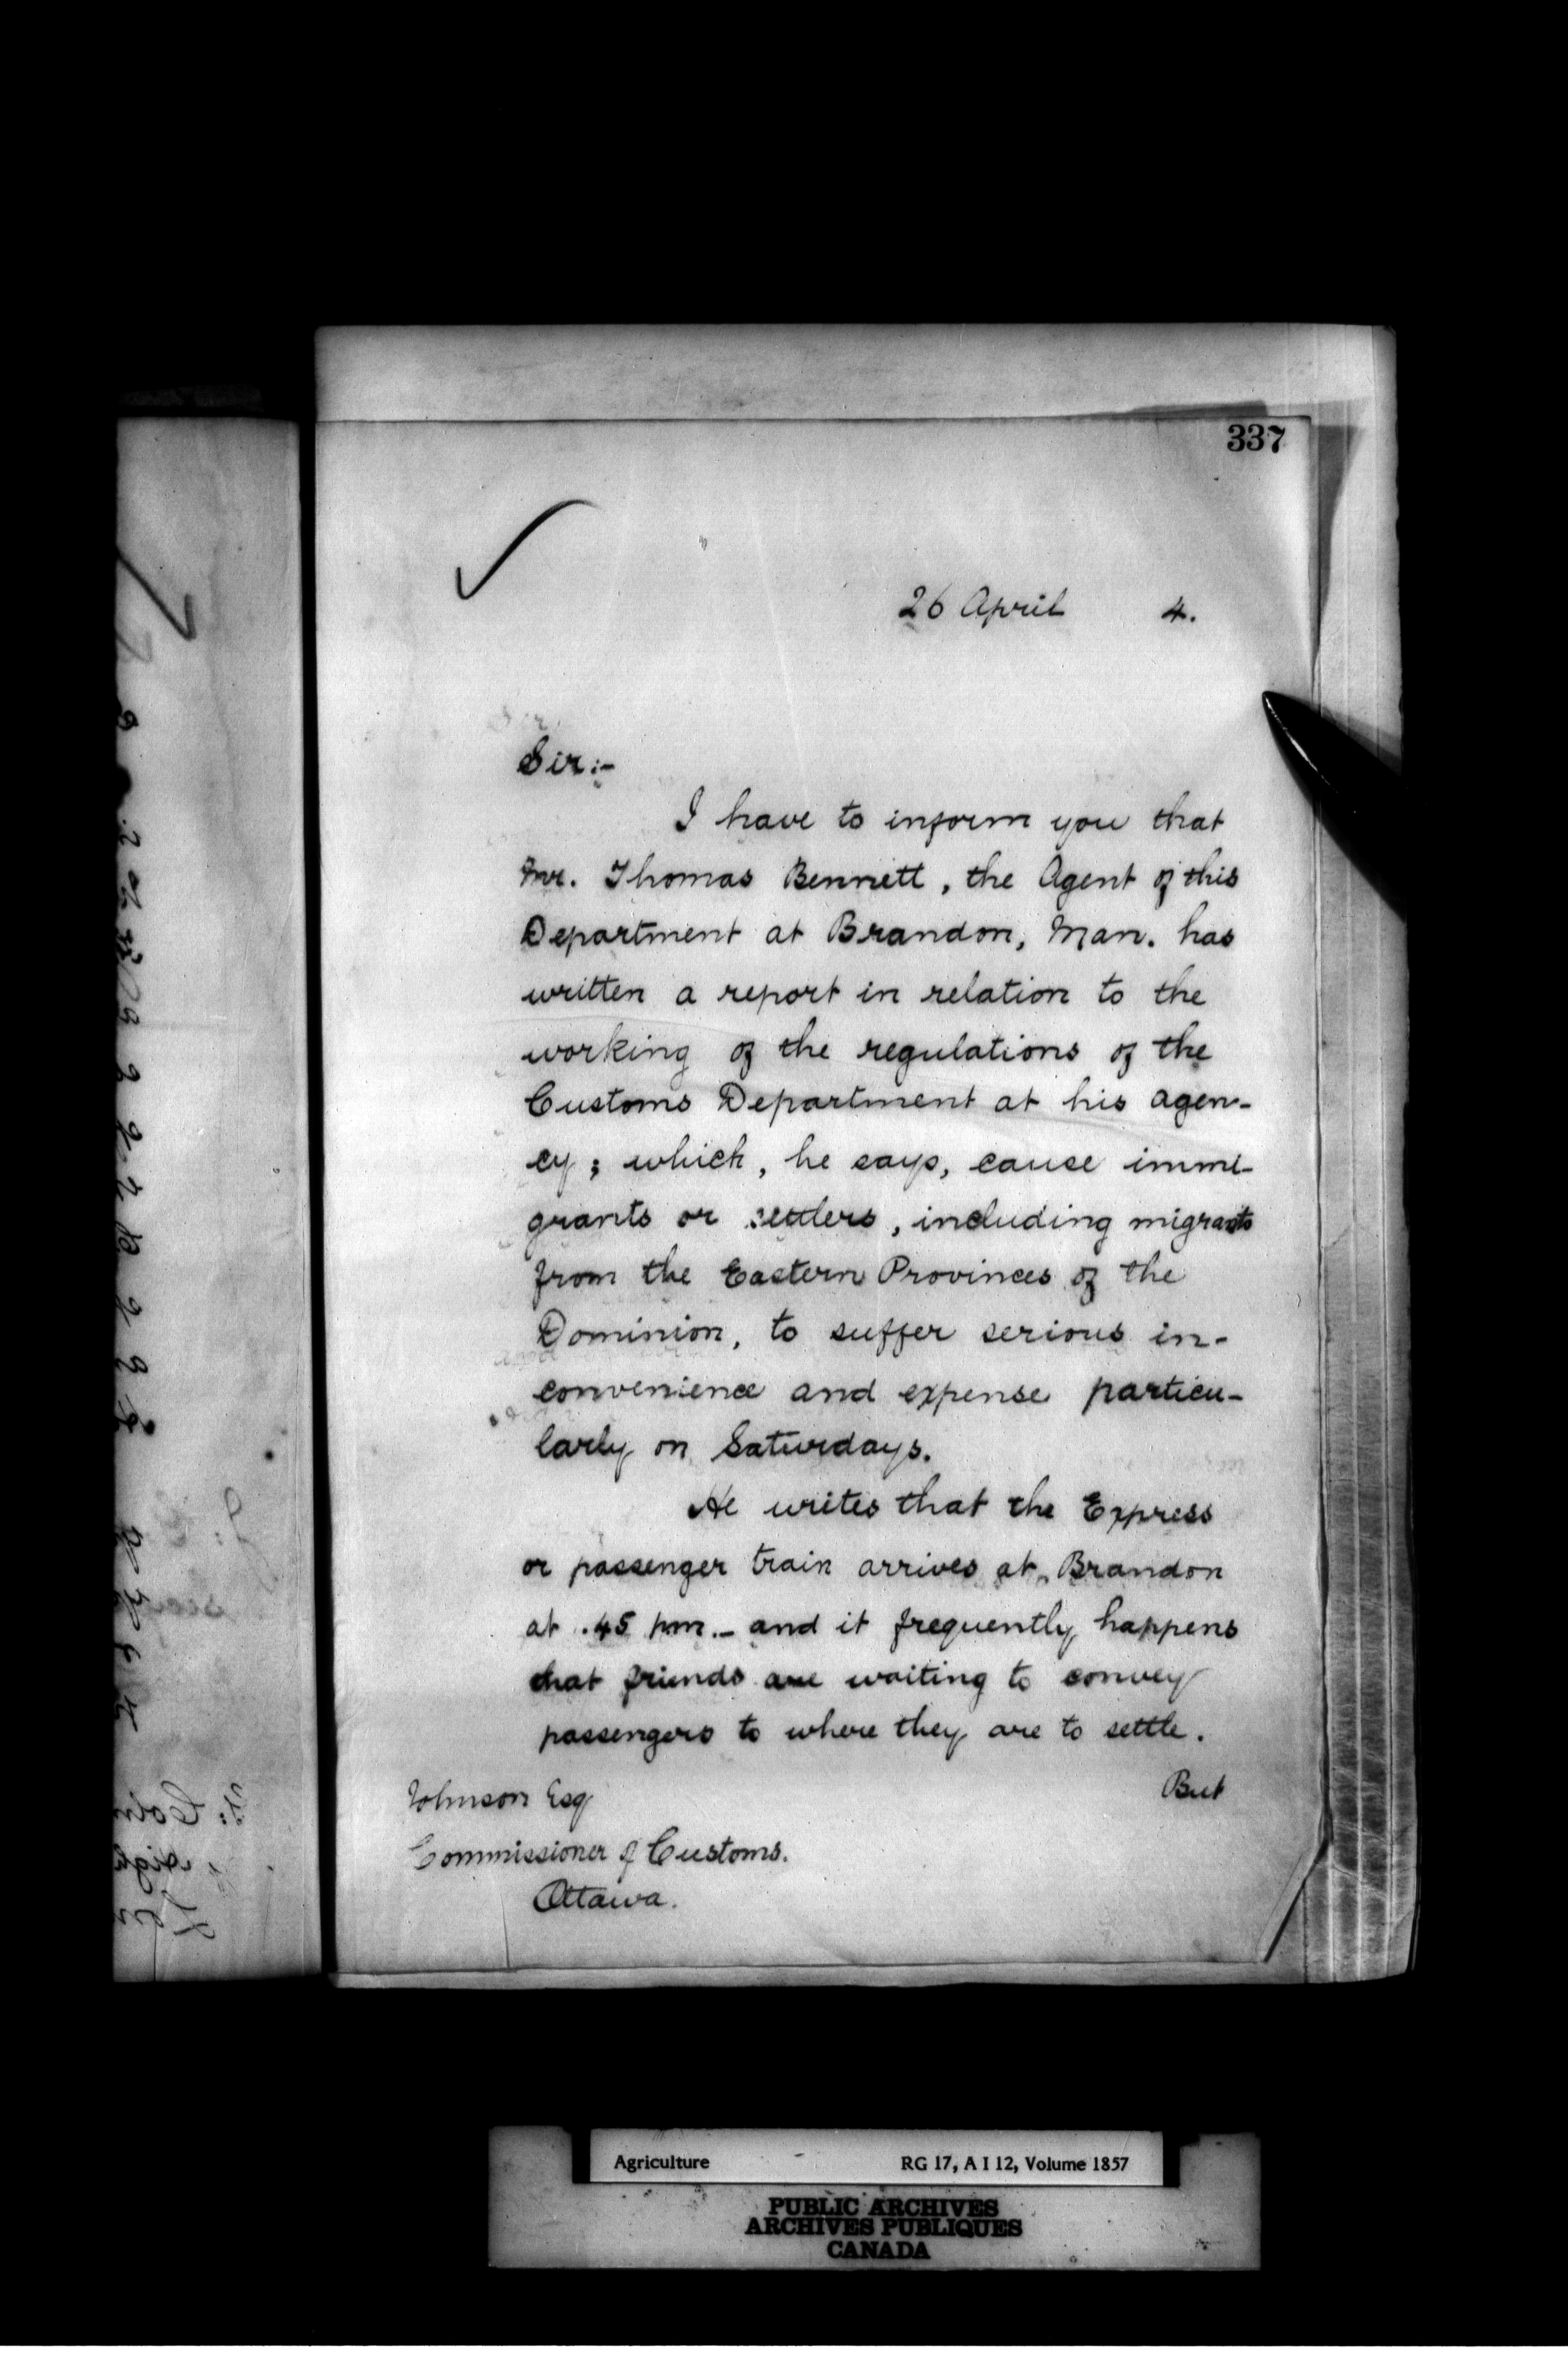 337
26 April 4.
Sir:-
I have to inform you that
Mr. Thomas Bennett, the Agent of this
Department at Brandon, Man. has
written a report in relation to the
working of the regulations of the
Customs Department at his agen-
cy; which, he says, cause immi-
grants or settlers, including migrants
from the Eastern Provinces of the
Dominion, to suffer serious in-
convenience and expense particu-
larly on Saturdays.
He writes that the Express
or passenger train arrives at Brandon
at .45 pm. - and it frequently happens
that friends are waiting to convey
passengers to where they are to settle.
But
Johnson Esq
Commissioner of Customs.
Ottawa.
Agriculture RG 17, A I 12, Volume 1857
PUBLIC ARCHIVES
ARCHIVES PUBLIQUES
CANADA